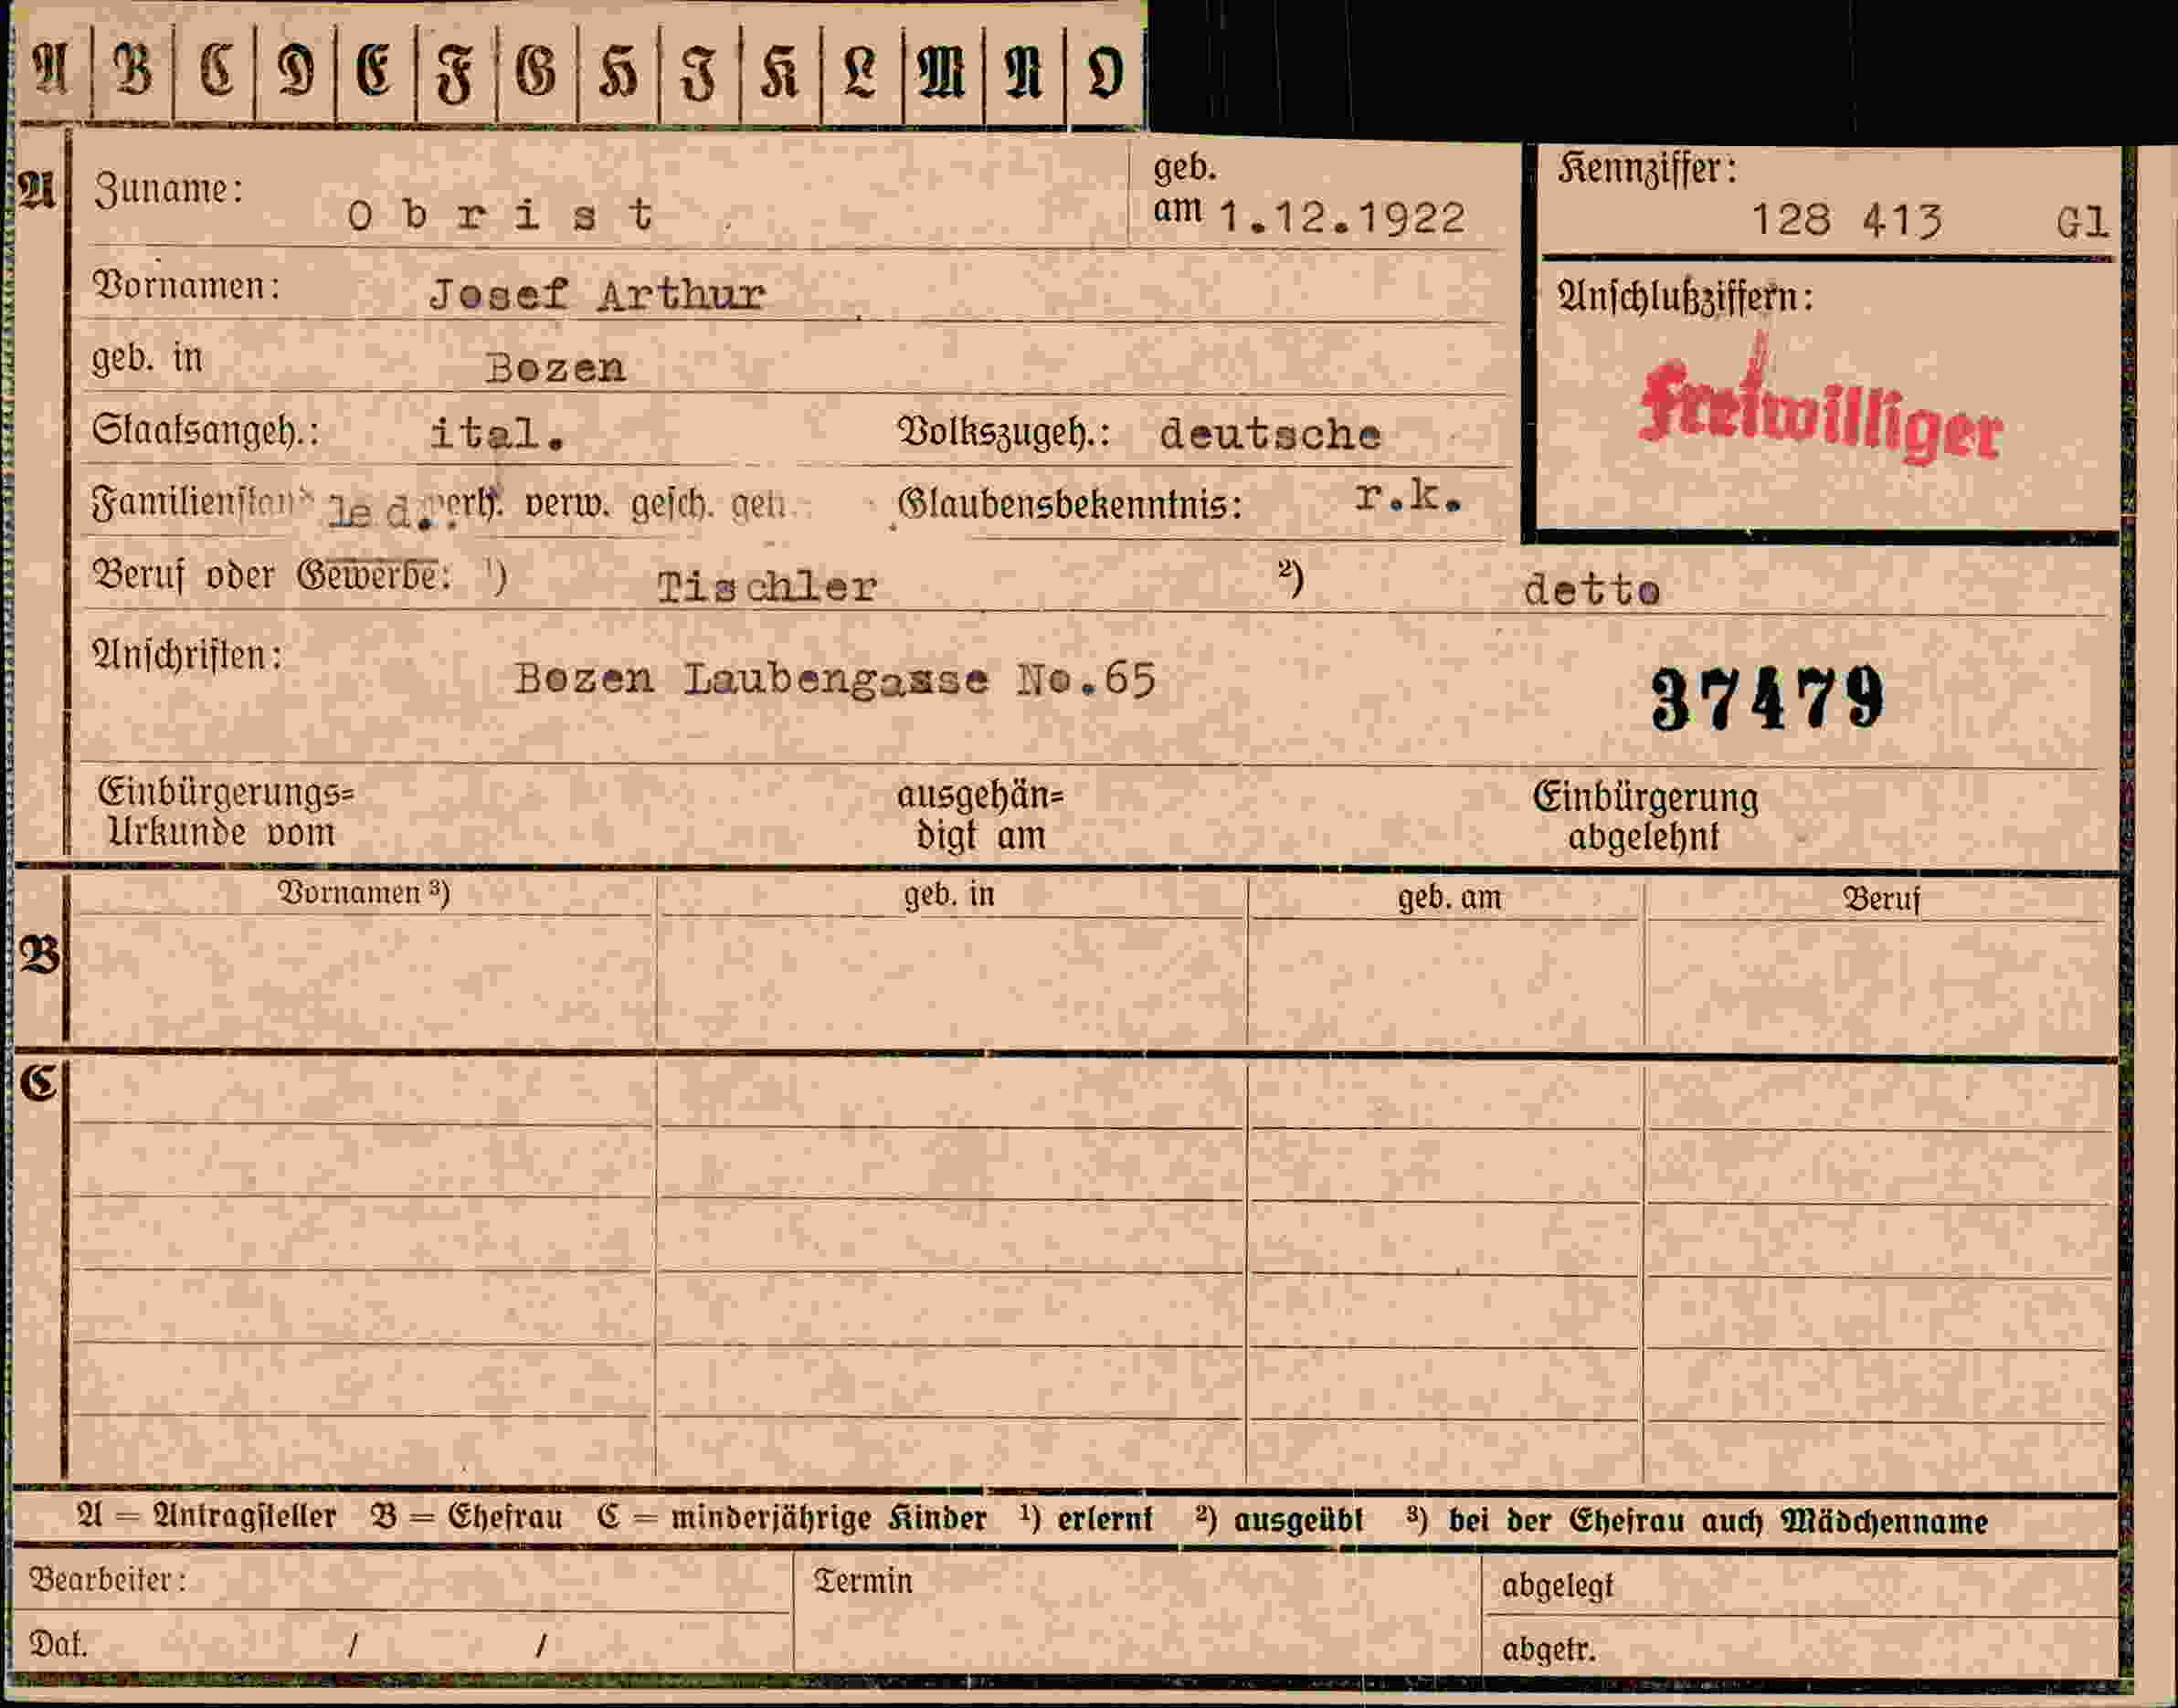 A B C D E F G H J K L M N O
A Zuname: Obrist geb. am 1.12.1922
Kennziffer: 128 413 Gl
Vornamen: Josef Arthur
Anschlußziffern:
Freiwilliger
geb. in Bozen
Staatsangeh.: ital. Volkszugeh.: deutsche
Familienstand led. verh. verw. gesch. getr. Glaubensbekenntnis: r.k.
Beruf oder Gewerbe: ¹) Tischler ²) detto
Anschriften: Bozen Laubengasse No.65
37479
Einbürgerungs=
Urkunde vom
ausgehän=
digt am
Einbürgerung
abgelehnt
Vornamen ³) geb. in geb. am Beruf
B
C
A = Antragsteller B = Ehefrau C = minderjährige Kinder ¹) erlernt ²) ausgeübt ³) bei der Ehefrau auch Mädchenname
Bearbeiter: Termin abgelegt
Dat. / / abgetr.